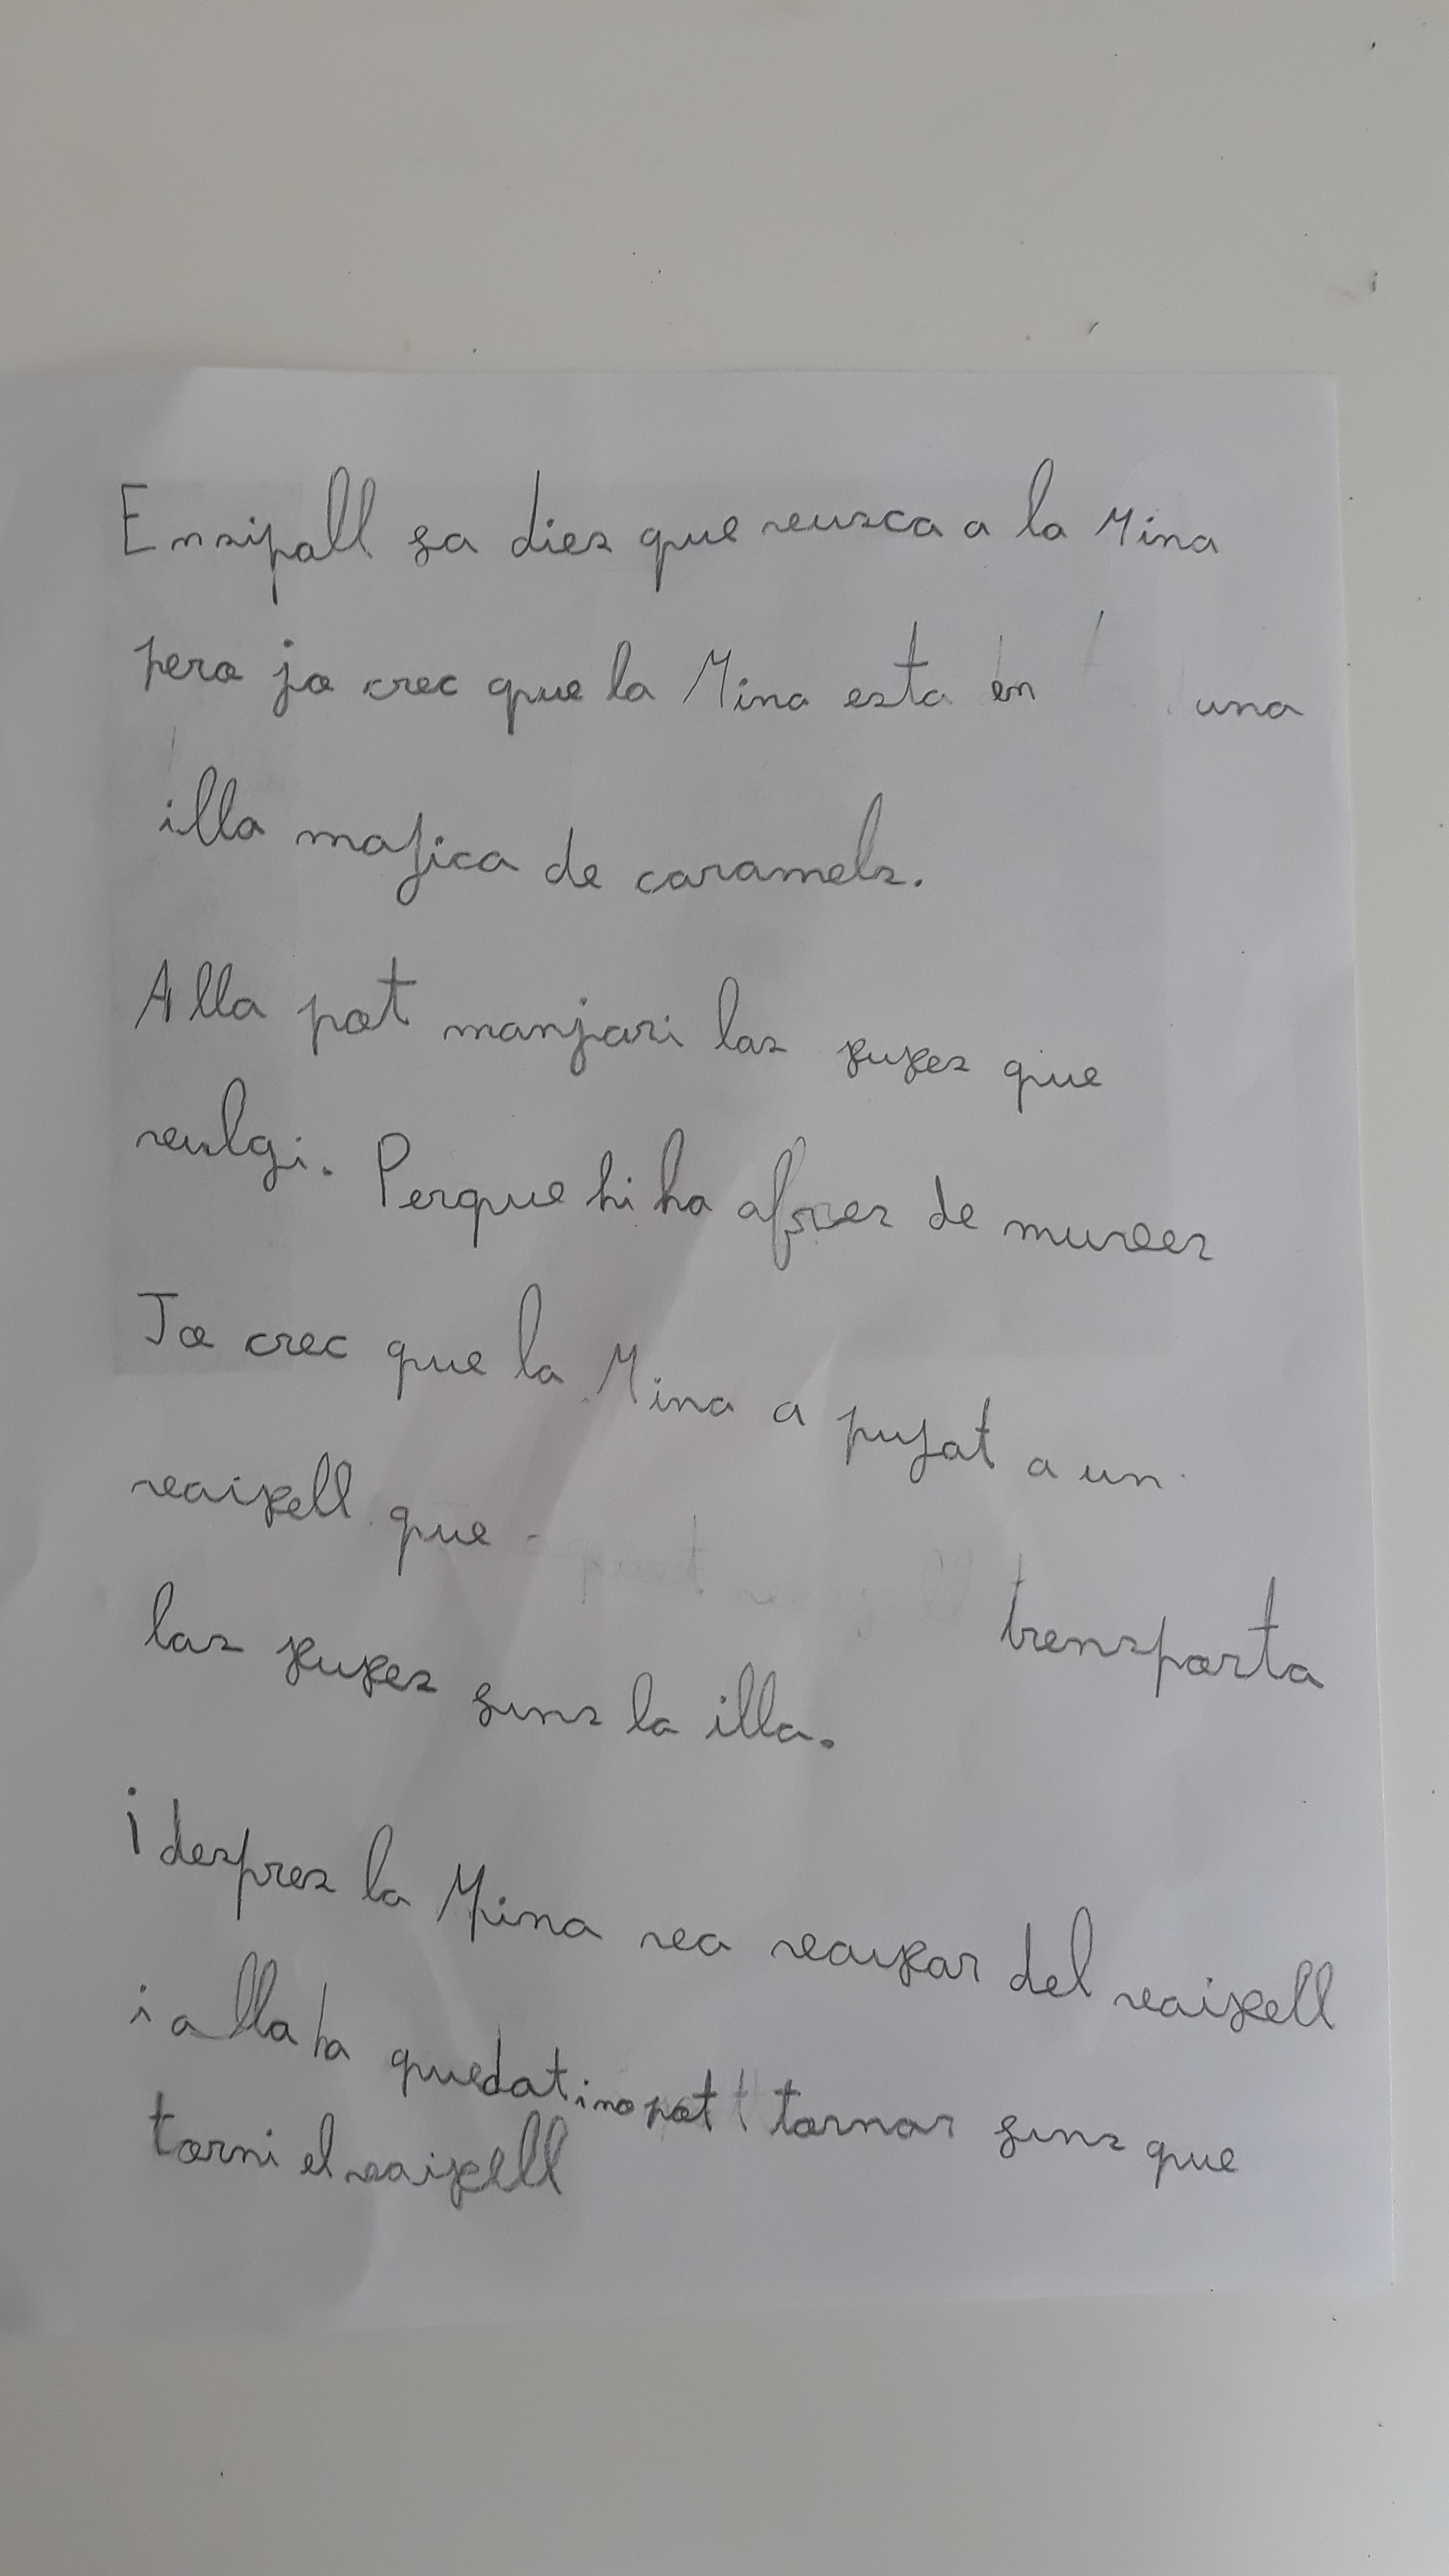 Ensipall fa dies que veusca a la Mina
pero jo crec que la Mina esta en una
illa majica de caramels.
Alla pot manjari las xuxes que
vulgi. Perque hi ha afres de mures
Jo crec que la Mina a pujat a un
vaixell que trensporta
las xuxes fins la illa.
i despres la Mina va vaixar del vaixell
i alla ha quedat i no pot tornar fins que
torni el vaixell